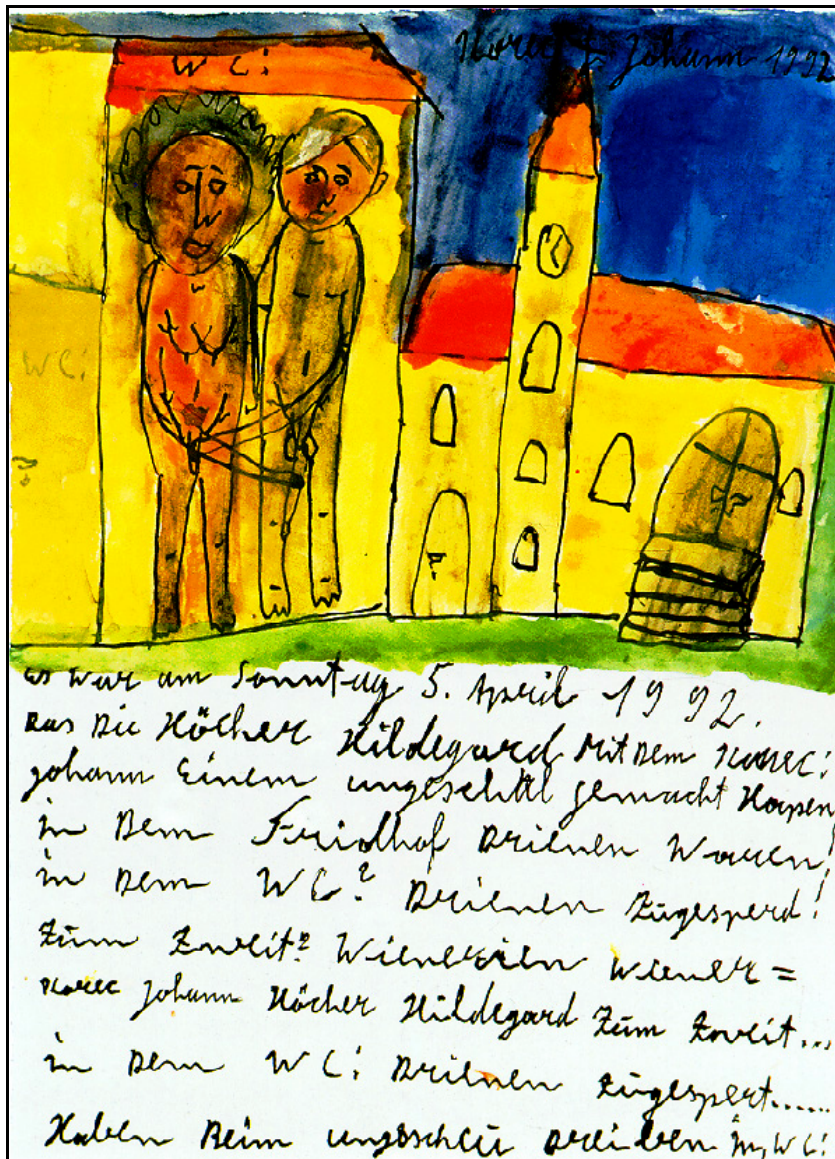 WC!
Korec Johann 1992
WC!
es war am Sonntag 5. April 1992.
Das Die Höcher Hildegard Mit Dem Korec!
Johann Einem gemacht Hapen
in Dem Fridhof Drienen Waren!
in Dem WC? Drienen Zugesperd!
Zum Zweit? Wienerien Wiener =
Korec Johann Höcher Hildegard Zum Zweit...
in Dem WC! Drienen zugespert......
Haben Beim in, WC!